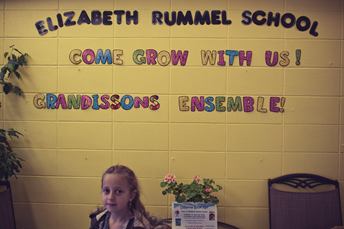 Elizabeth Rummel School
Come Grow With Us!
Grandissons Ensemble!